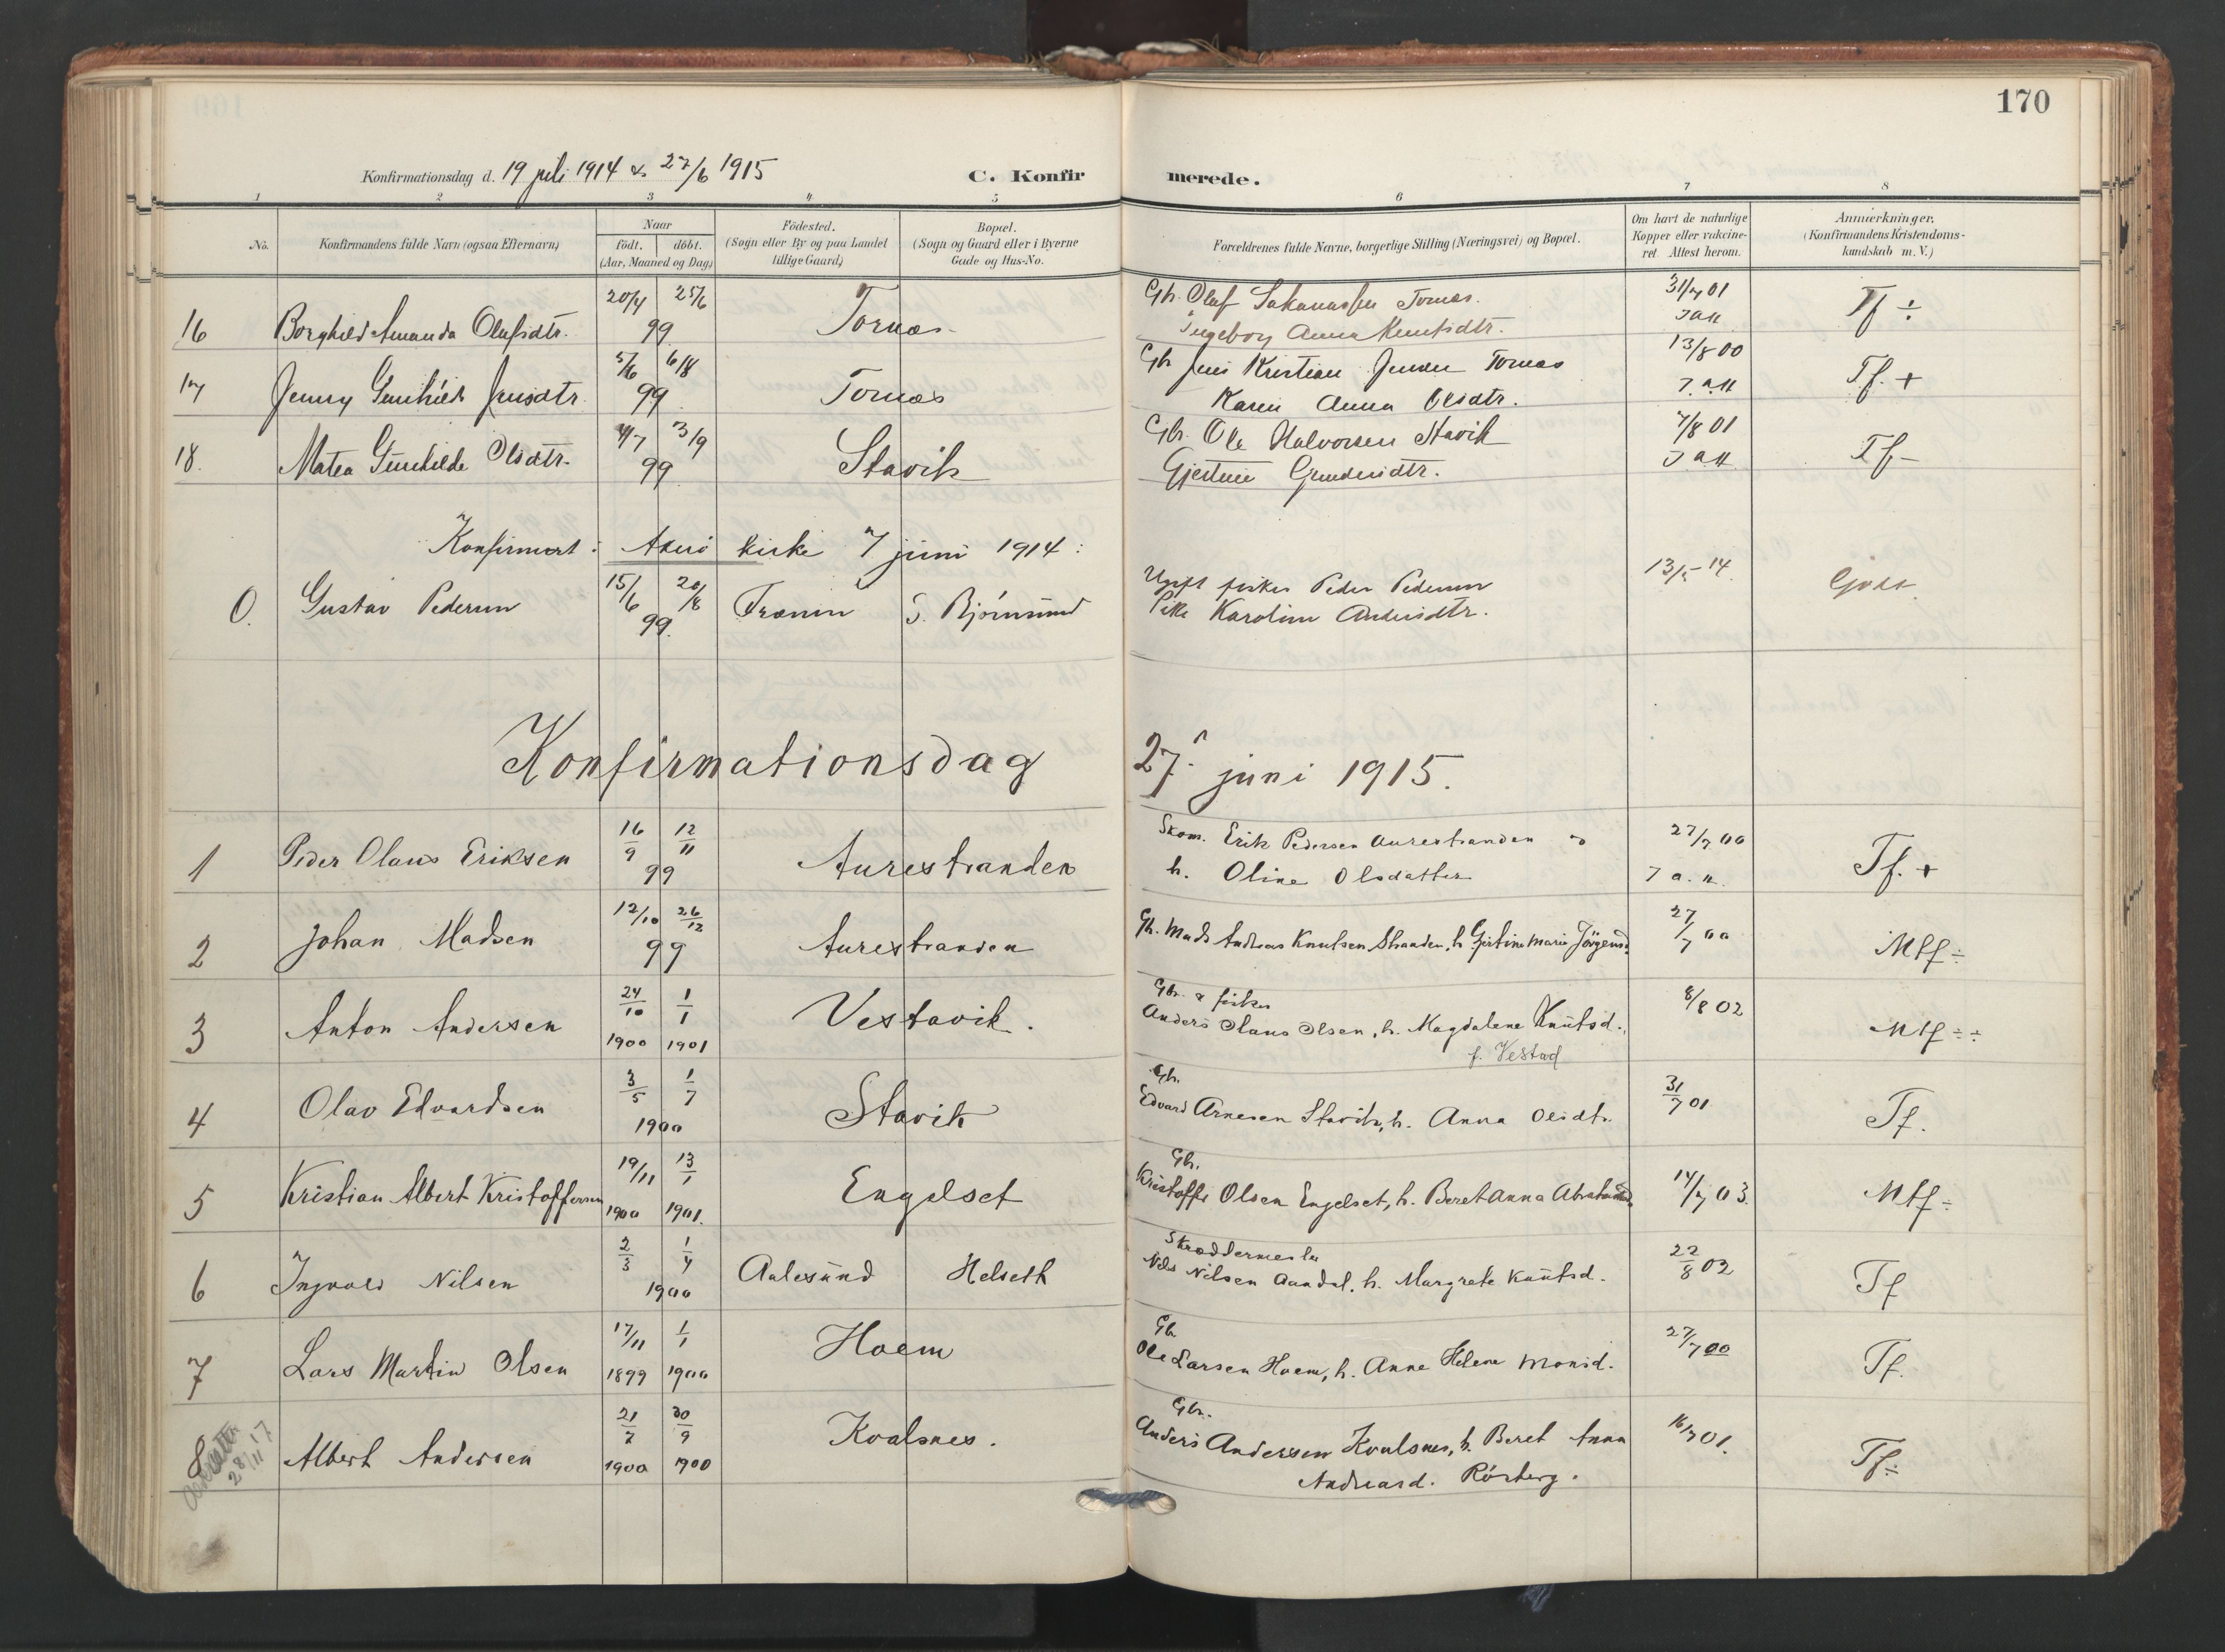 170
Konfirmationsdag d. 19 juli 1914 & 27/6 1915
C. Konfir merede.
1 2 3 4 5 6 7 8
No.
Konfirmandens fulde Navn (ogsaa Efternavn)
Naar
födt. döbt.
(Aar, Maaned og Dag)
Födested.
(Sogn eller By og paa Landet
tillige Gaard)
Bopæl.
(Sogn og Gaard eller i Byerne
Gade og Hus-No.
Forældrenes fulde Navne, borgerlige Stilling (Næringsvei) og Bopæl.
Om havt de naturlige
Kopper eller vakcine-
ret. Attest herom.
Anmærkninger.
(Konfirmandens Kristendoms-
kundskab m. V.)
16 Borghild Amanda Olafsdtr. 20/4 25/6 99 Tornæs Gbr. Olaf Tornæs. 31/7 01 Tf ÷
Ingeborg Anna Knutsdtr.
17 Jenny Gunhild Jensdtr. 5/6 6/8 99 Tornæs Gbr Jens Kristian Jensen Tornæs 13/8 00 Tf. +
Karen Anna Olsdtr.
18. Matea Gunhilde Olsdtr. 4/7 3/9 99 Stavik Gbr. Ole Halvorsen Stavik 7/8 01 Tf -
Gjertine Gundersdtr.
Konfirmert i Akerö kirke 7 juni 1914:
0. Gustav Pedersen 15/6 20/8 99. Frænen S. Björnsund Ugift fisker Peder Pedersen 13/5 14. Godt
Pike Karoline Andersdtr.
Konfirmationsdag 27. juni 1915.
1 Peder Olaus Eriksen 16/9 12/11 99 Aurestranden Skom. Erik Pedersen Aurestranden o 27/7 00 Tf. +
h. Oline Olsdatter J a. n.
2 Johan Madsen 12/10 26/12 99 Aurestranden Gb. Mads Andreas Knutsen Stranden, h. Gjertine Marie Jörgensd. 27/7 00 Mtf ÷
3 Anton Andersen 24/10 1900 1/1 1901 Vestavik. Gbr. & fisker 8/8 02 Mtf ÷÷
Anders Olaus Olsen, h. Magdalene Knutsd.,
f. Vestad
4 Olav Edvardsen 3/5 1/7 1900 Stavik Gb. 31/7 01 Tf.
Edvard Arnesen Stavik, h. Anna Olsdtr.
5 Kristian Albert Kristoffersen 19/11 1900 13/1 1901. Engelset Gb. 14/7 03. Mtf ÷
Kristoffer Olsen Engelset, h. Beret Anna
6 Ingvald Nilsen 2/3 1/4 1900 Aalesund Helseth Skræddermester 22/8 02 Tf
Nils Nilsen Aandal, h. Margrete Knutsd.
7 Lars Martin Olsen 17/11 1899 1/1 1900 Hoem Gb 27/7 00 Tf.
Ole Larsen Hoem, h. Anne Helene Monsd.
8 Albert Andersen 21/7 1900 30/9 1900 Kvalsnes. Gbr. 16/7 01. Tf ÷
Anders Anderssen Kvalsnes, h. Beret Anna
Andreasd. Rösberg.
28/11 17